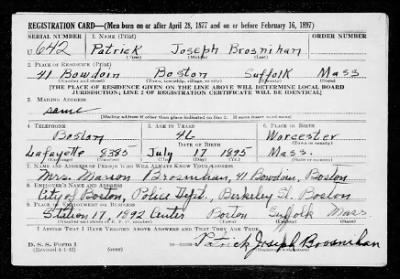 REGISTRATION CARD—(Men born on or after April 28, 1877 and on or before February 16, 1897)
SERIAL NUMBER 1. NAME (Print) ORDER NUMBER
U 642 Patrick Joseph Brosnihan
(First) (Middle) (Last)
2. PLACE OF RESIDENCE (Print)
41 Bowdoin Boston Suffolk Mass
(Number and street) (Town, township, village, or city) (County) (State)
[THE PLACE OF RESIDENCE GIVEN ON THE LINE ABOVE WILL DETERMINE LOCAL BOARD
JURISDICTION; LINE 2 OF REGISTRATION CERTIFICATE WILL BE IDENTICAL]
3. MAILING ADDRESS
same
[Mailing address if other than place indicated on line 2. If same insert word same]
4. TELEPHONE 5. AGE IN YEARS 6. PLACE OF BIRTH
Boston 46 Worcester
DATE OF BIRTH
Lafayette 5385 July 17 1895 Mass.
(Exchange) (Number) (Mo.) (Day) (Yr.) (State or country)
7. NAME AND ADDRESS OF PERSON WHO WILL ALWAYS KNOW YOUR ADDRESS
Mrs. Marion Brosnihan, 41 Bowdoin, Boston
8. EMPLOYER'S NAME AND ADDRESS
City of Boston, Police Dept., Berkeley St. Boston
9. PLACE OF EMPLOYMENT OR BUSINESS
Station 17, 1892 Center Boston Suffolk Mass
(Number and street or R. F. D. number) (Town) (County) (State)
I AFFIRM THAT I HAVE VERIFIED ABOVE ANSWERS AND THAT THEY ARE TRUE.
D. S. S. Form 1
(Revised 4-1-42) Patrick Joseph Brosnihan